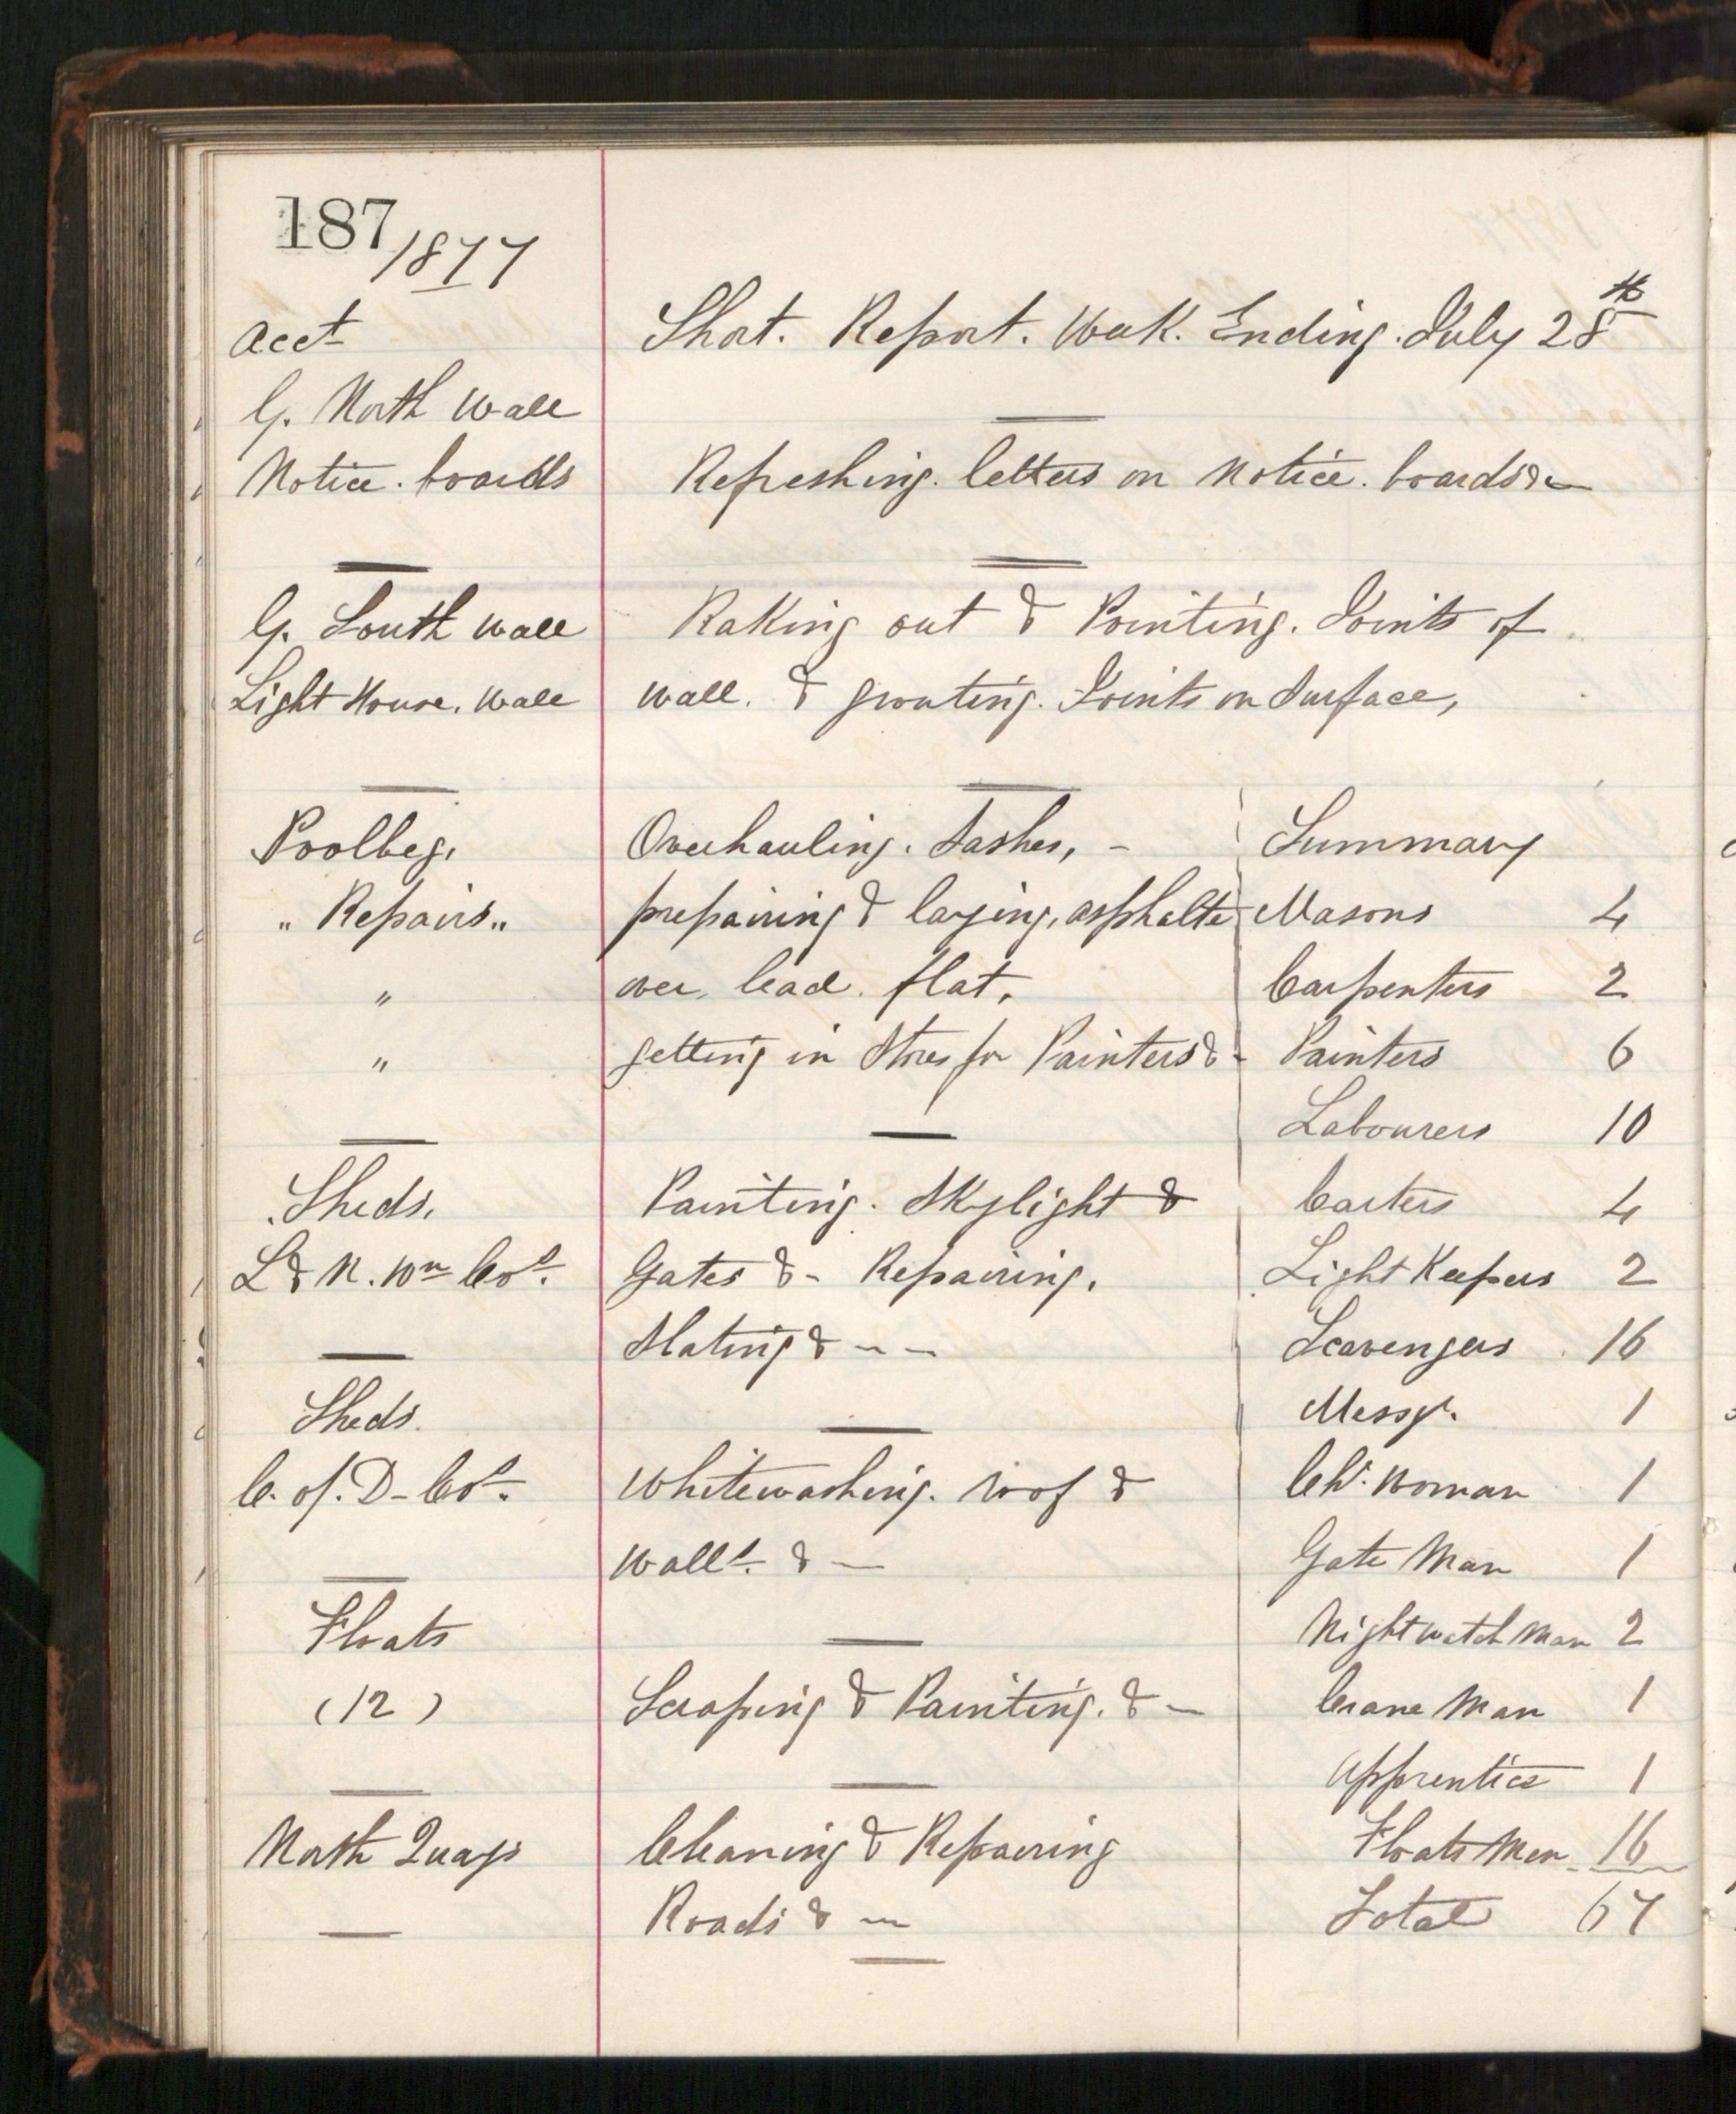 187/1877
Acct
Short. Report. Week. Ending. July 28th
G. North Wall
Notice. boards
Refreshing. letters on Notice. boards &—
G. South Wall
Raking out & Pointing. Joints of
Light House. Wall
wall. & grouting. Joints on Surface,
Poolbeg.
Overhauling. Sashes, -
Summary
" Repairs "
prepairing & laying, asphalte
Masons 4
"
over, lead. flat,
Carpenters 2
"
getting in Stores for Painters & -
Painters 6
Labourers 10
Sheds.
Painting. Skylight &
Carters 4
L & N. Wn Cos.
Gates & - Repairing.
Light Keepers 2
Slating & - -
Scavengers 16
Sheds.
Messr. 1
C. of. D - Cos.
Whitewashing. roof &
Chr. Woman 1
Walls. & —
Gate Man 1
Floats
Night watch Man 2
(12)
Scraping & Painting. & —
Crane Man 1
Apprentice 1
North Quays
Cleaning & Repairing
Floats Men 16
Roads & —
Total 67